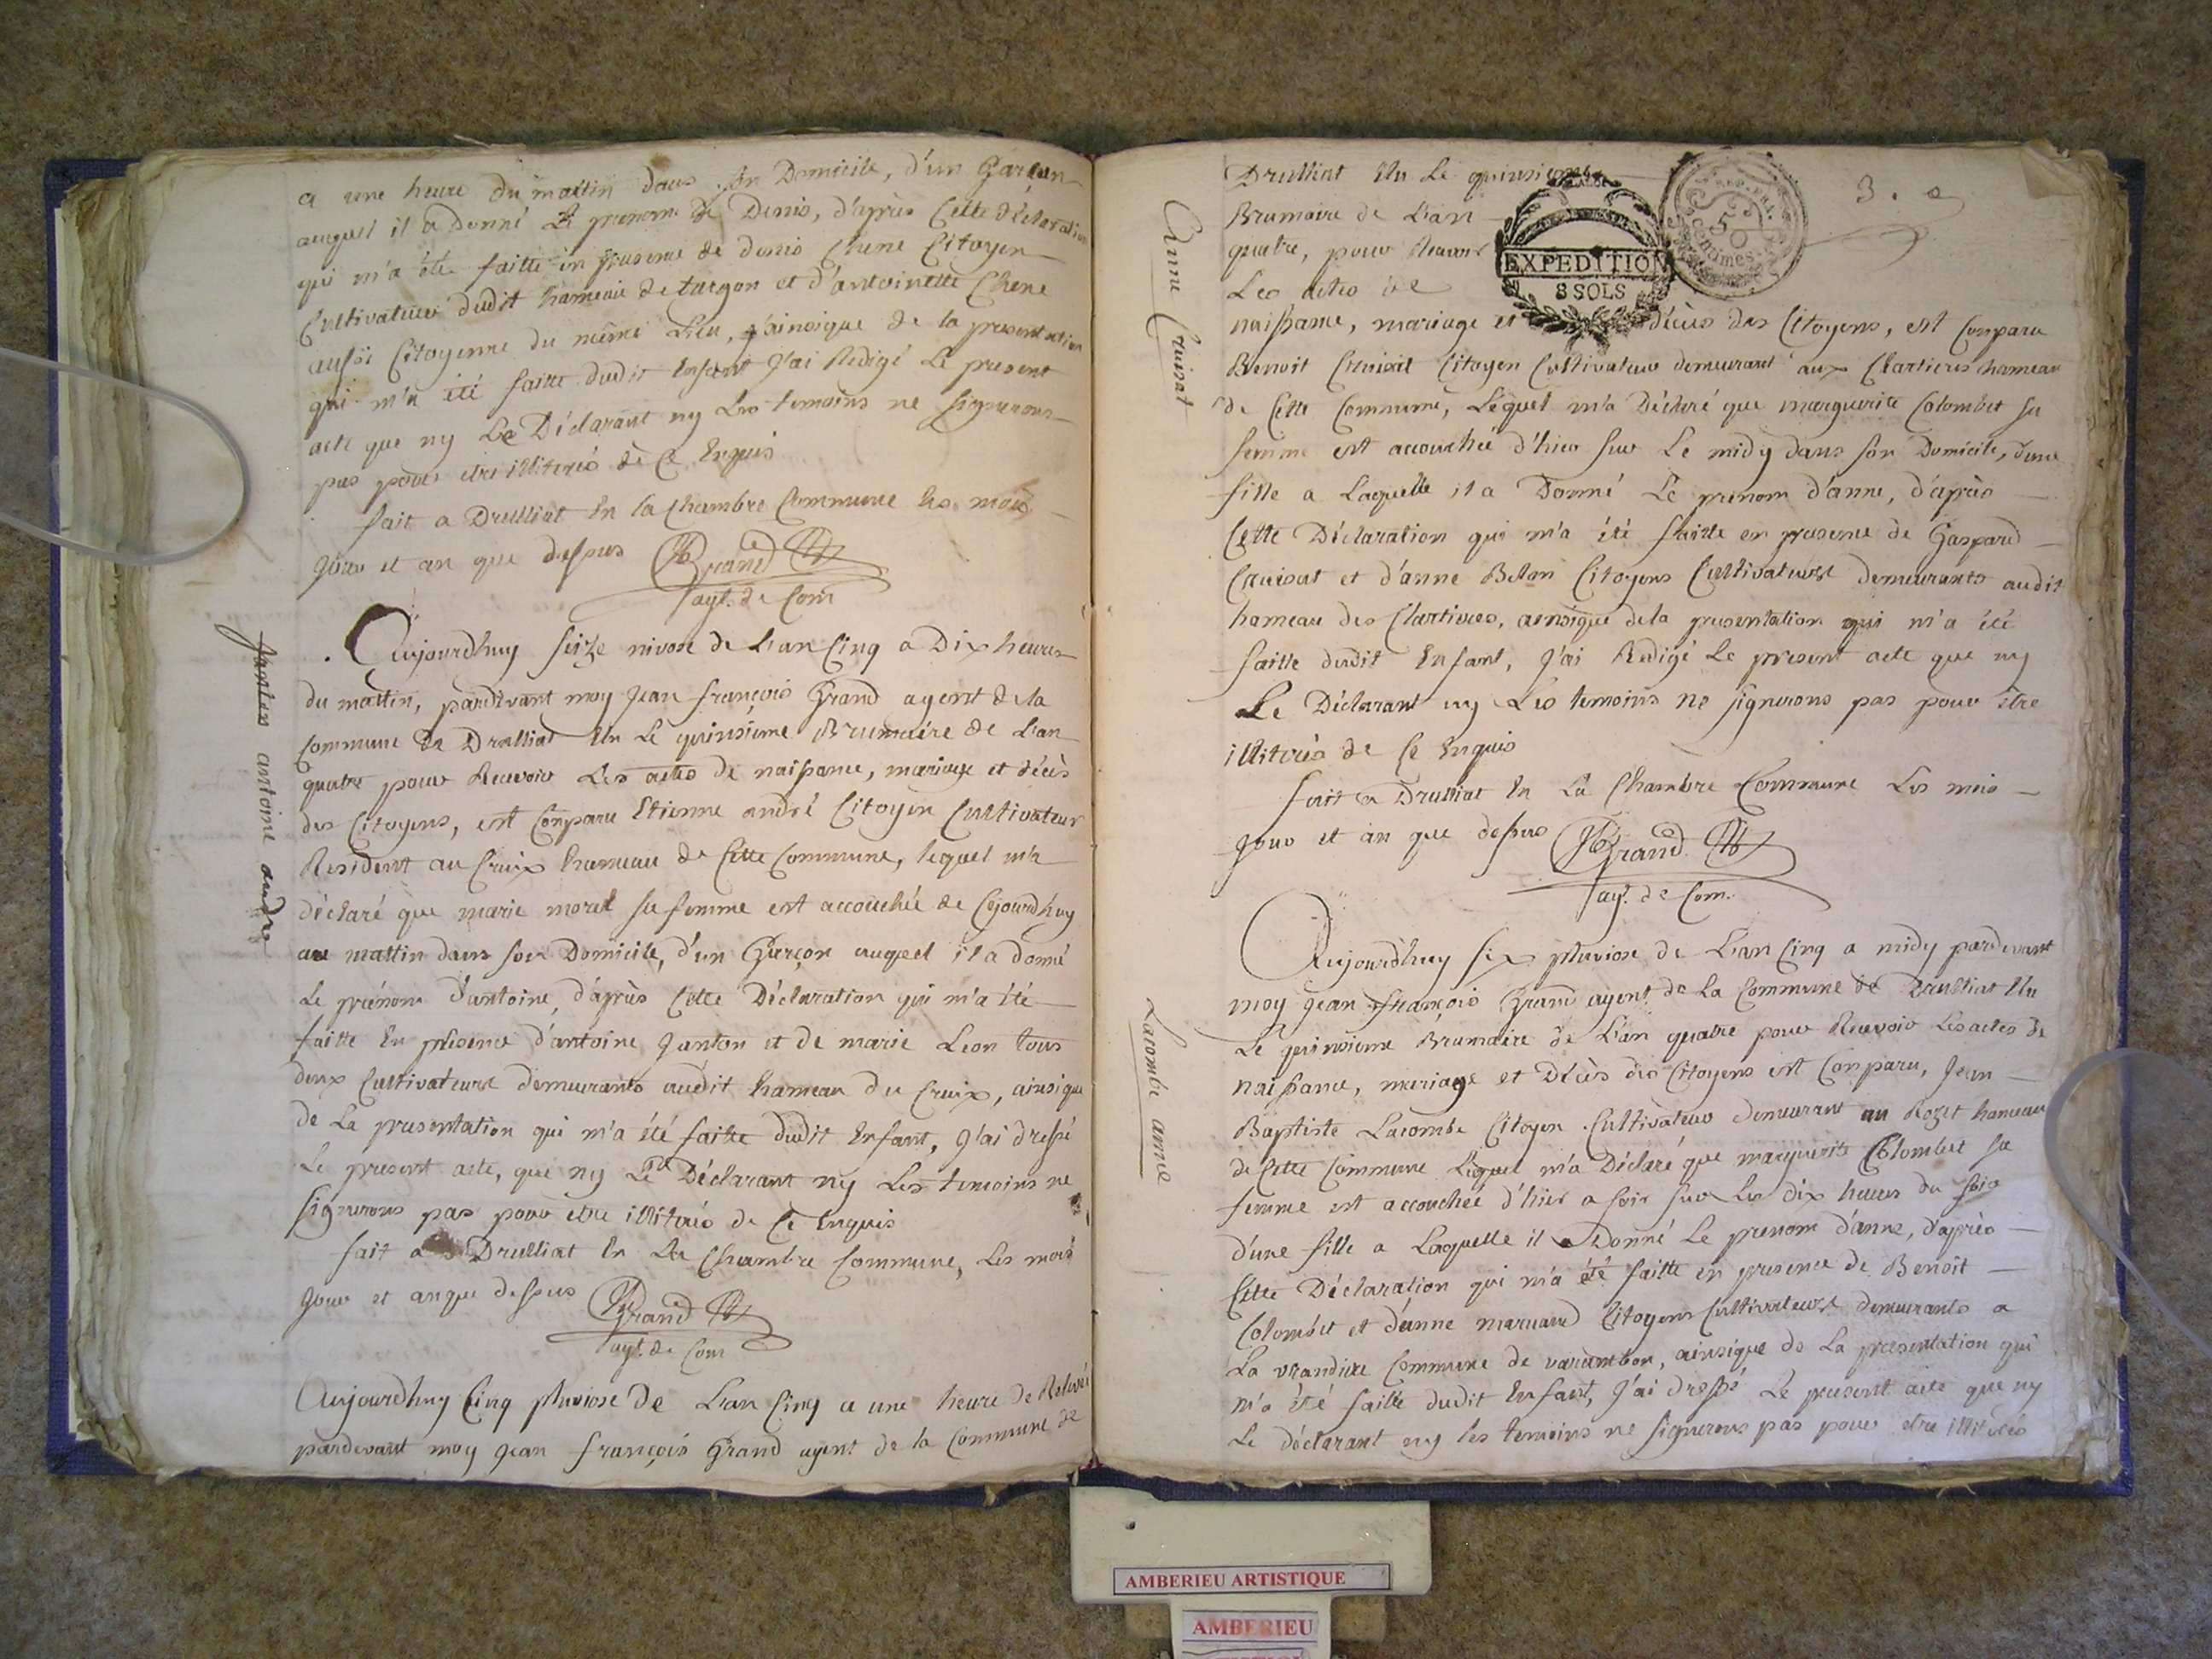 a une heure du mattin dans son Domicile, d'un Garçon
auquel il a donné Le prenom de Denis, d'après Cette déclaration
qui m'a été faitte en presence de denis Chene Citoyen
Cultivateur dudit hameau de turgon et d'antoinette Chene
aussi Citoyenne du même Lieu, ainsique de la presentation
qui m'a été faitte dudit Enfant J'ai Redigé Le present
acte que ny Le Déclarant ny Les temoins ne signerons
pas pour etre illiterés de Ce Enquis
fait a Drulliat En la Chambre Commune les mois
Jour et an que dessus Grand
agt. de Com
Janton antoine andré
Aujourdhuy seize nivose de L'an Cinq a Dix heures
du mattin, pardevant moy Jean françois Grand agent de la
Commune de Drulliat Elu Le quinsieme Brumaire de L'an
quatre pour Recevoir Les actes de naissance, mariage et décès
des Citoyens, est Conparu Etienne andré Citoyen Cultivateur
Resident au Cruix hameau de Cette Commune, lequel m'a
déclaré que marie morel sa femme est accouchée de Cejourdhuy
au mattin dans son Domicile, d'un Garçon auquel il a donné
Le prénom d'antoine, d'après Cette Déclaration qui m'a été
faitte En présence d'antoine Janton et de marie Leon tous
deux Cultivateurs demeurants audit hameau du Cruix, ainsique
de La presentation qui m'a été faitte dudit Enfant, J'ai dressé
Le present acte, que ny Le Déclarant ny Les temoins ne
signerons pas pour etre illiterés de Ce Enquis
fait a Drulliat En La Chambre Commune, Les mois
Jour et an que dessus Grand
agt. de Com
Aujourdhuy Cinq pluviose de L'an Cinq a une heure de Relevée
pardevant moy Jean françois Grand agent de la Commune de
Drulliat Elu Le quinsieme
Brumaire de L'an
quatre, pour
Les actes de
EXPEDITION
8 SOLS
REP. FRA.
50
centimes
3.
Anne Cruisat
naissance, mariage et décès des Citoyens, est Conparu
Benoit Cruisat Citoyen Cultivateur demeurant aux Clartieres hameau
de Cette Commune, Lequel m'a Déclaré que marguerite Colombet sa
femme est accouchée d'hier sur Le midy dans son Domicile, d'une
fille a Laquelle il a Donné Le prenom d'anne, d'après
Cette Déclaration qui m'a été faitte en presence de Gaspard
Cruisat et d'anne Belon Citoyens Cultivateurs demeurants audit
hameau des Clartieres, ainsique de la presentation qui m'a été
faitte dudit Enfant, J'ai Redigé Le present acte que ny
Le Déclarant ny Les temoins ne signerons pas pour être
illiterés de Ce Enquis
fait a Drulliat En La Chambre Commune Les mois
Jour et an que dessus Grand
agt. de Com.
Lacombe anne
Aujourdhuy six pluviose de L'an Cinq a midy pardevant
moy Jean françois Grand agent de La Commune de Drulliat Elu
Le quinsieme Brumaire de L'an quatre pour Recevoir Les actes de
naissance, mariage et Décès des Citoyens est Conparu, Jean
Baptiste Lacombe Citoyen Cultivateur demeurant au Rozet hameau
de Cette Commune Lequel m'a Déclaré que marguerite Colombet sa
femme est accouchée d'hier a soir sur Les dix heures du soir
d'une fille a Laquelle il a Donné Le prenom d'anne, d'après
Cette Déclaration qui m'a été faitte en presence de Benoit
Colombet et d'anne Citoyens Cultivateurs demeurants a
La Commune de varambon, ainsique de La presentation qui
m'a été faitte dudit Enfant, J'ai dressé Le present acte que ny
Le déclarant ny les temoins ne signerons pas pour etre illiterés
AMBERIEU ARTISTIQUE
AMBERIEU